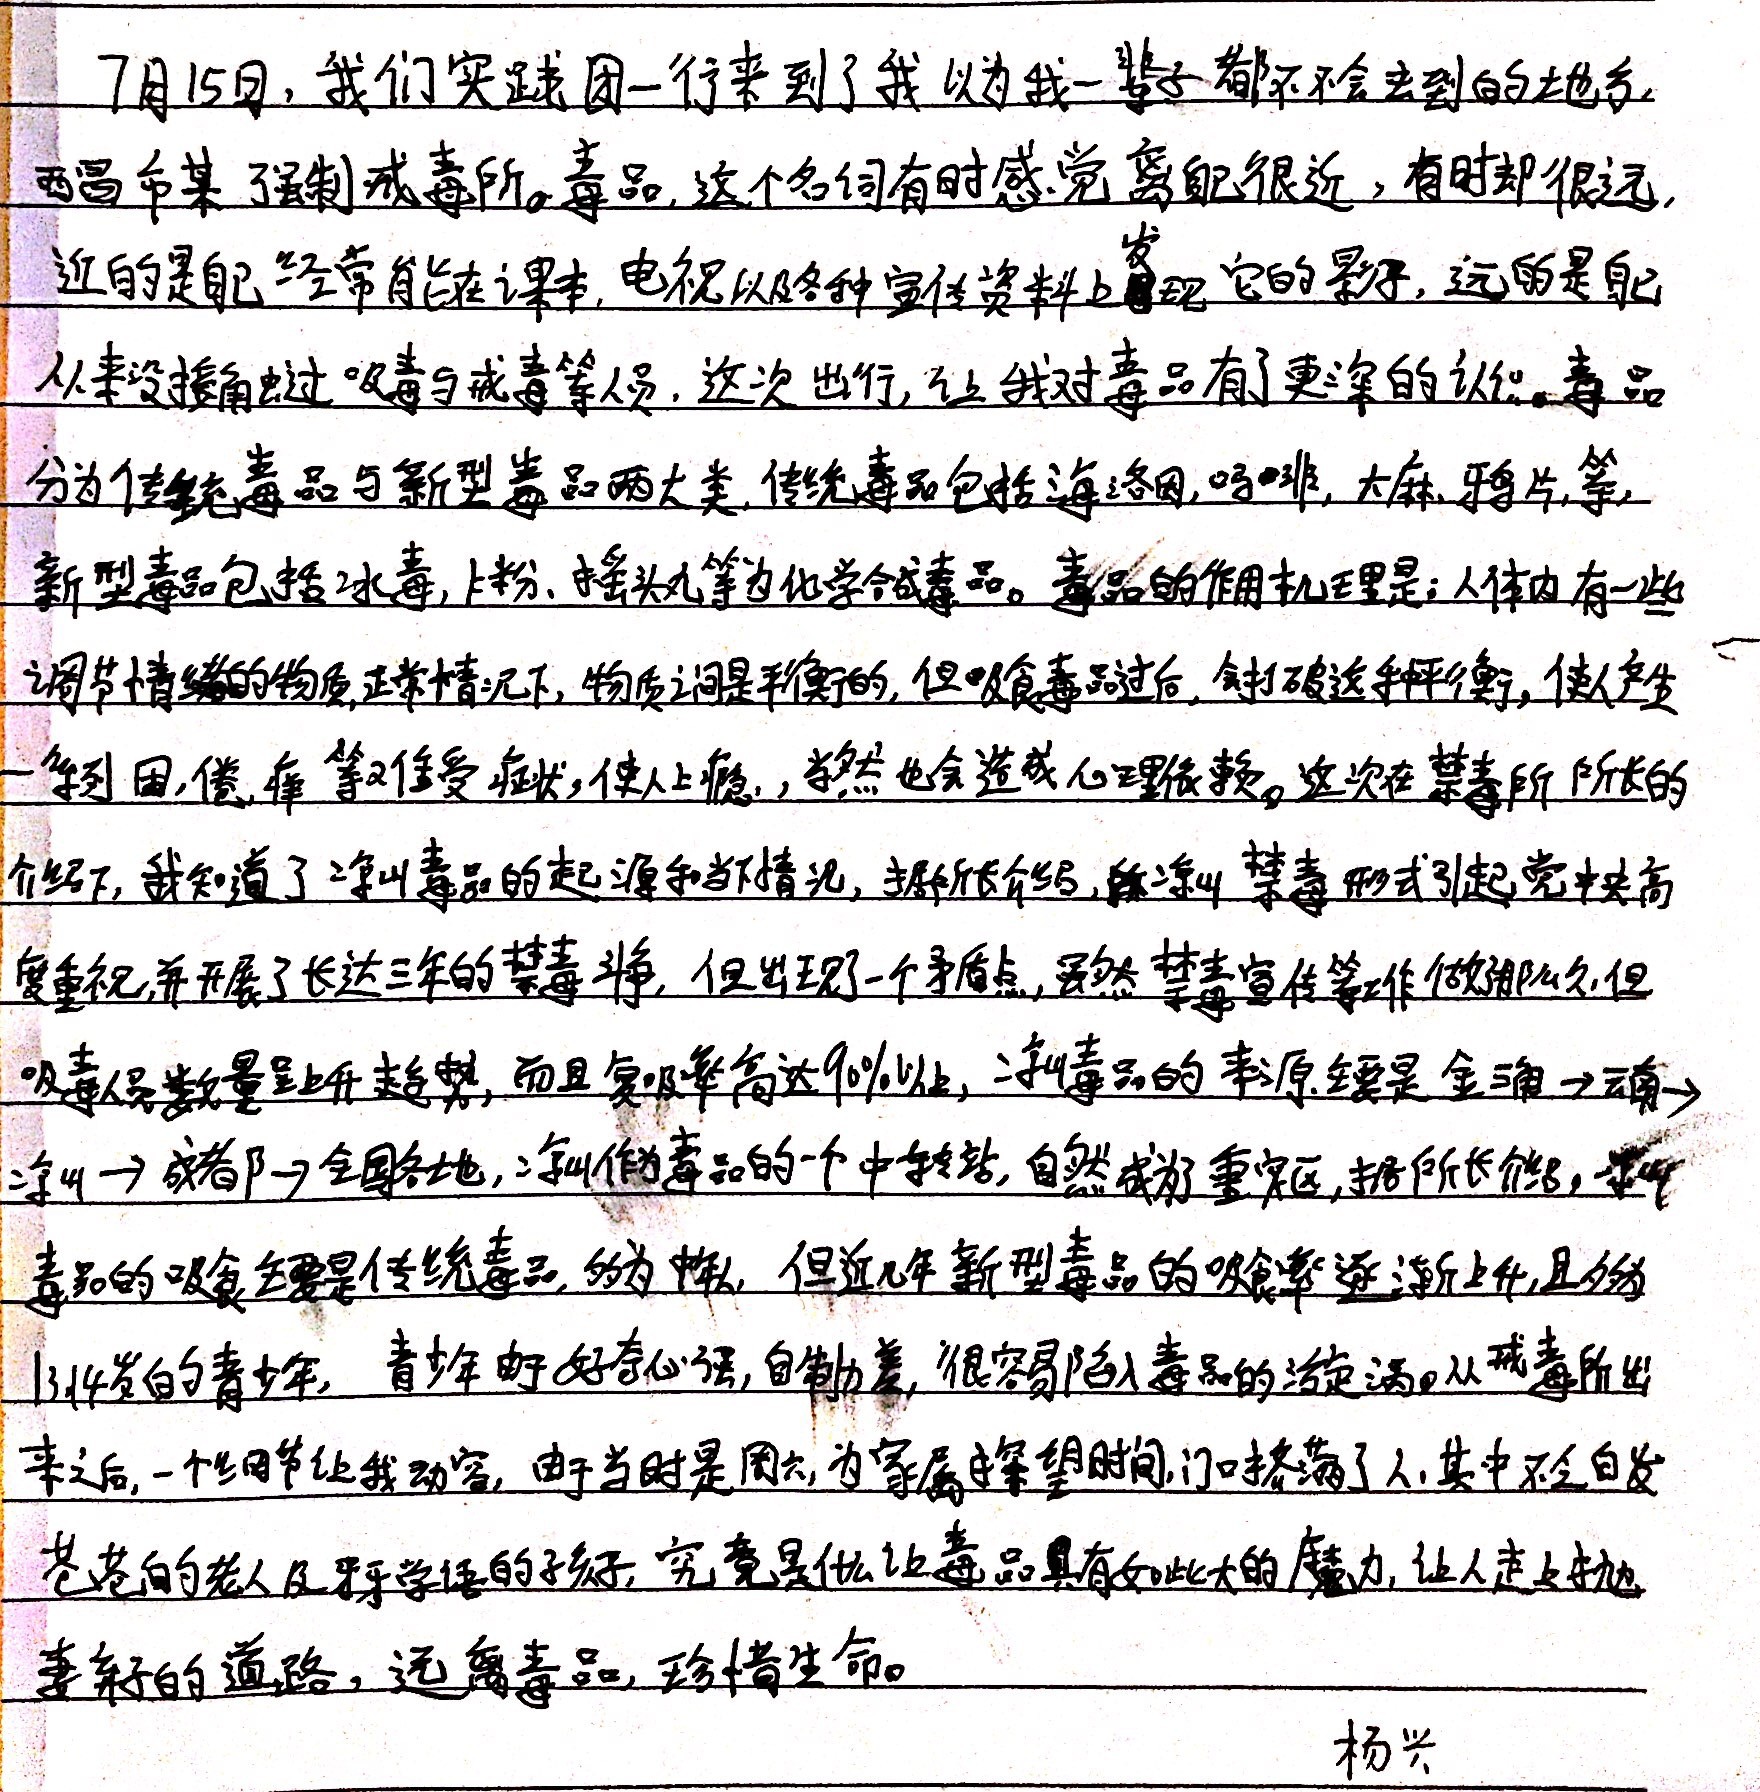 7月15日，我们实践团一行来到了我以为我一辈子都不会去到的地方，
西昌市某强制戒毒所。毒品，这个名词有时感觉离自己很近，有时却很远，
近的是自己经常能在课本，电视以及各种宣传资料上发现它的影子，远的是自己
从来没接触过吸毒与戒毒等人员，这次出行，让我对毒品有了更深的认识。毒品
分为传统毒品与新型毒品两大类，传统毒品包括海洛因，吗啡，大麻、鸦片，等，
新型毒品包括冰毒，K粉、摇头丸等为化学合成毒品。毒品的作用机理是：人体内有一些
调节情绪的物质，正常情况下，物质之间是平衡的，但吸食毒品过后，会打破这种平衡，使人产生
一系列困，倦，痒等难受症状，使人上瘾，当然也会造成心理依赖。这次在禁毒所所长的
介绍下，我知道了凉山毒品的起源和当下情况，据所长介绍，凉山禁毒形式引起党中央高
度重视，并开展了长达三年的禁毒斗争，但出现了一个矛盾点，虽然禁毒宣传等工作做了那么久，但
吸毒人员数量呈上升趋势，而且复吸率高达90%以上，凉山毒品的来源主要是金三角→云南→
凉山→成都→全国各地，凉山作为毒品的一个中转站，自然成为了重灾区，据所长介绍，凉山
毒品的吸食主要是传统毒品，多为中年人，但近几年新型毒品的吸食率逐渐上升，且多为
13.14岁的青少年，青少年由于好奇心强，自制力差，很容易陷入毒品的漩涡。从戒毒所出
来之后，一个细节让我动容，由于当时是周六，为家属探望时间，门口挤满了人，其中不乏白发
苍苍的老人及牙牙学语的孩子，究竟是什么让毒品具有如此大的魔力，让人走上抛
妻弃子的道路，远离毒品，珍惜生命。
杨兴